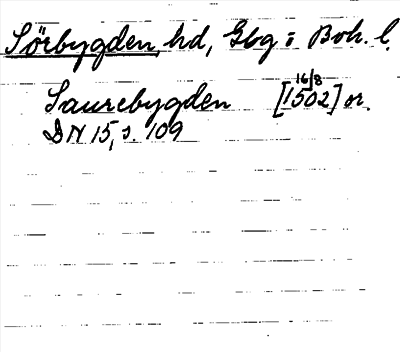 Sörbygden hd, Gbg o Boh. l.
Saurebygden [1502 16/8] or.
DN 15, s. 109